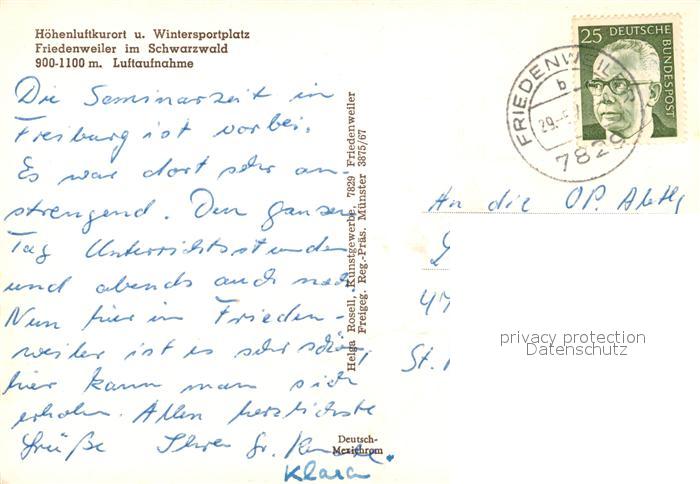 Höhenluftkurort u. Wintersportplatz
Friedenweiler im Schwarzwald
900-1100 m. Luftaufnahme
Die Seminarzeit in
Freiburg ist vorbei.
Es war dort sehr an-
strengend. Den ganzen
Tag Unterrichtsstunden
und abends auch noch.
Nun hier in Frieden-
weiler ist es sehr schön,
hier kann man sich
erholen. Allen herzlichste
Grüße Ihre
Klara
Helga Rosell, Kunstgewerbe, 7829 Friedenweiler
Freigeg. Reg.-Präs. Münster 3875/67
Deutsch-
Mexichrom
25 DEUTSCHE
BUNDESPOST
FRIEDENWEILER
b
29.
7829
An die OP. Abtlg
47
St.
privacy protection
Datenschutz